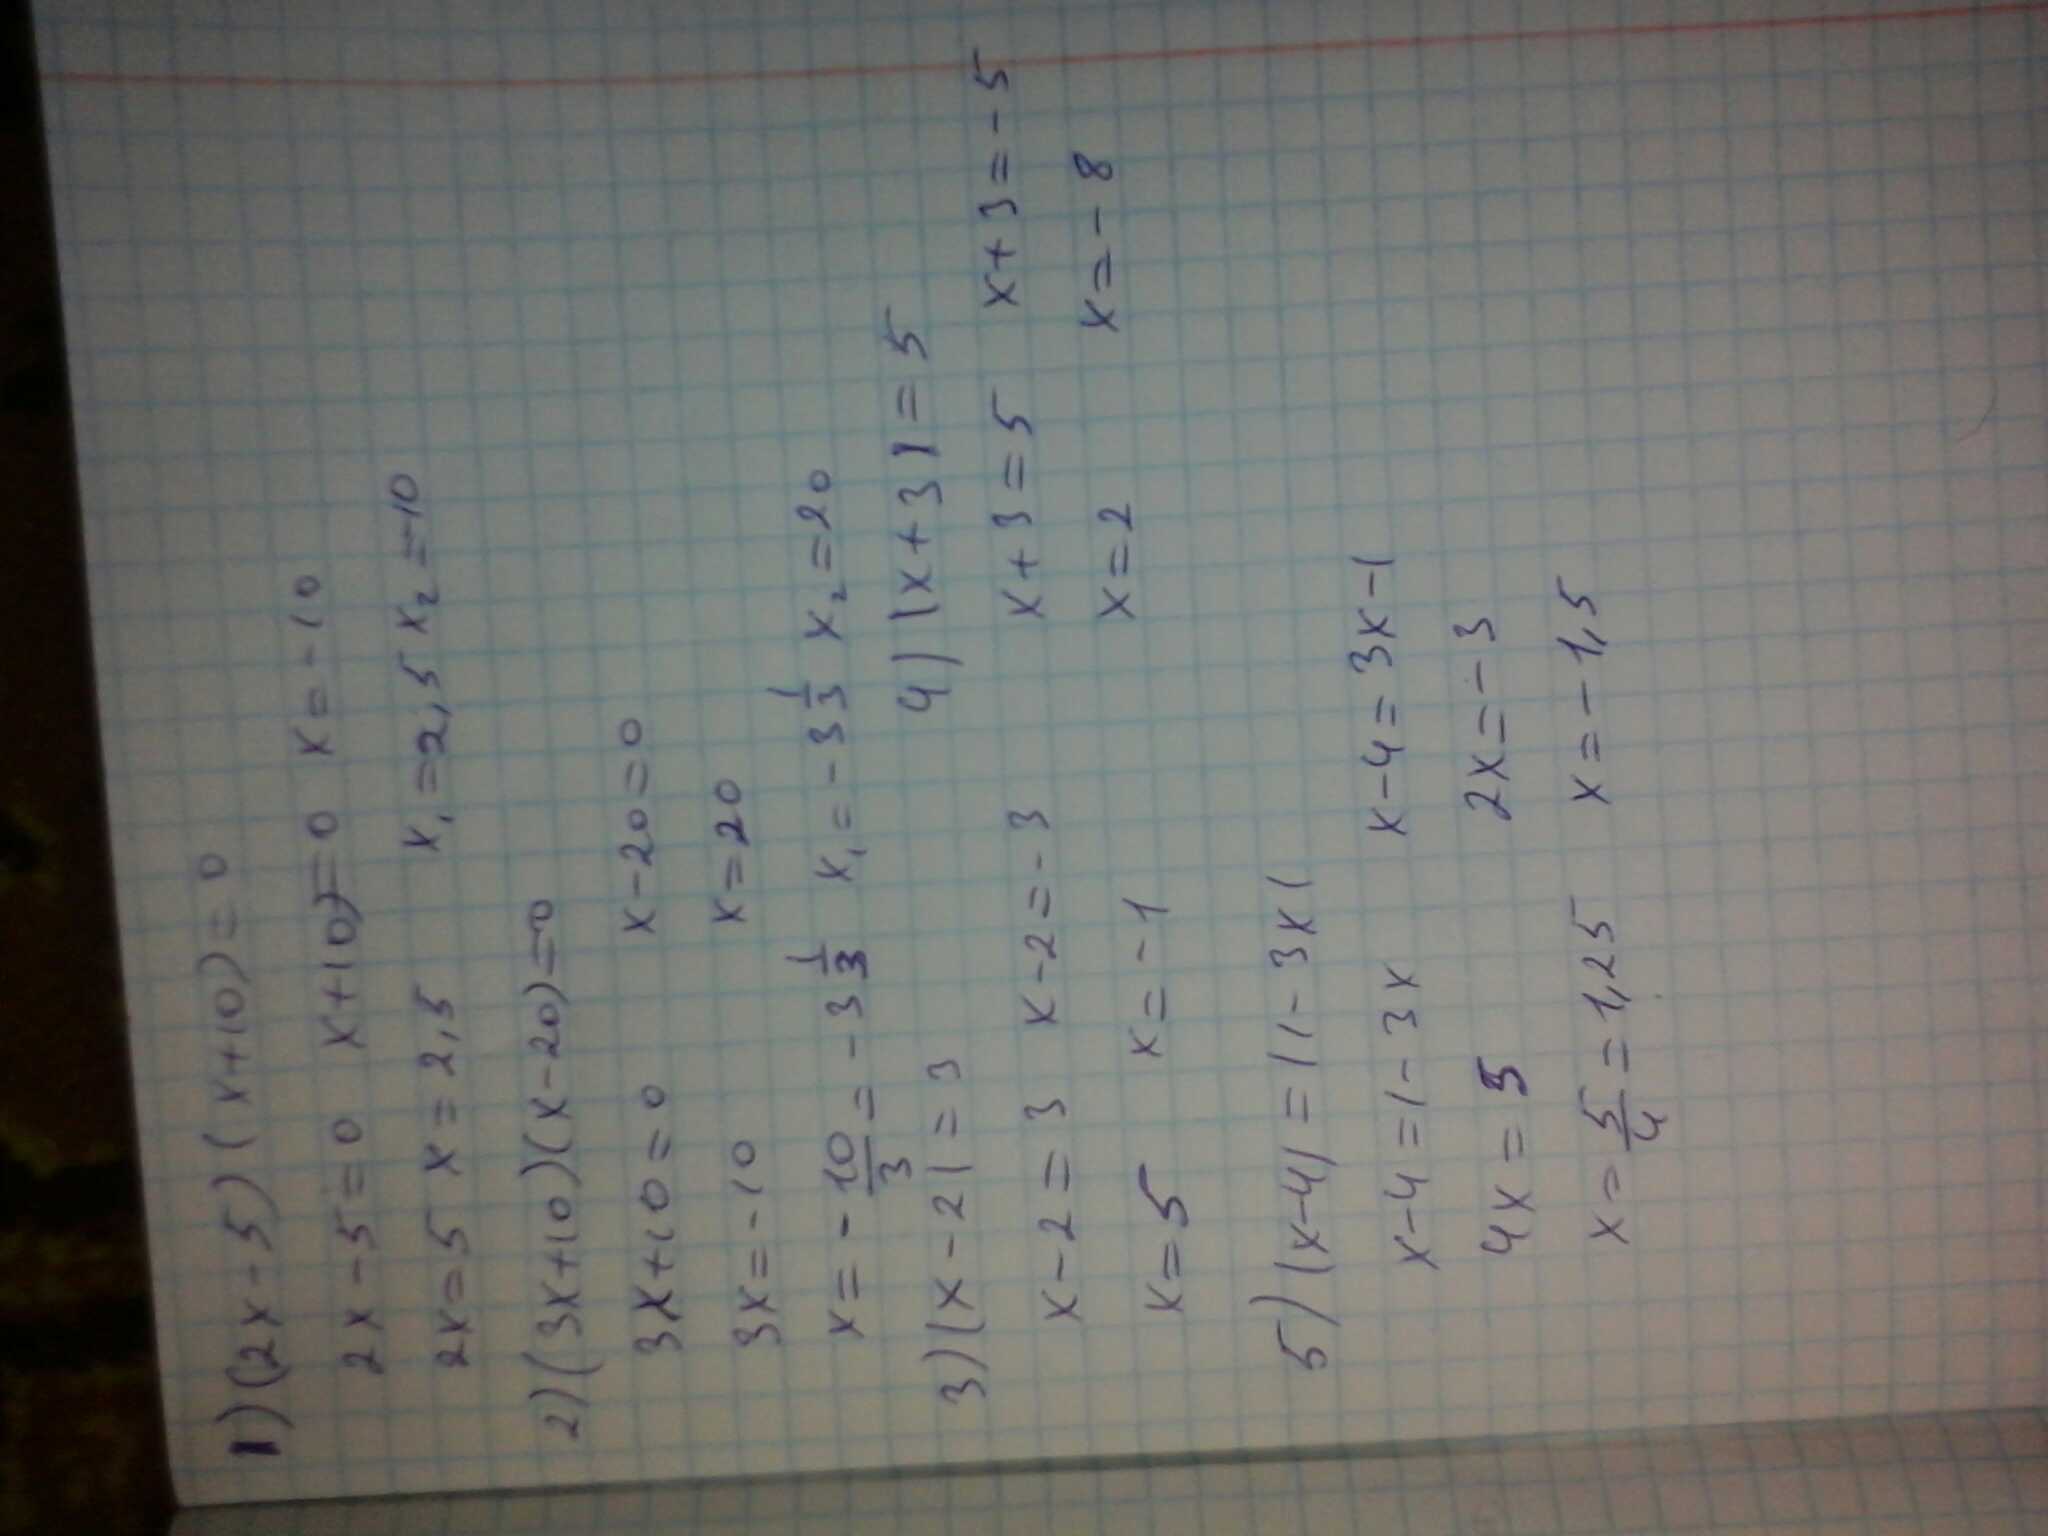 1) (2x-5)(x+10)=0
2x-5=0 x+10)=0 x=-10
2x=5 x=2,5 x₁=2,5 x₂=-10
2) (3x+10)(x-20)=0
3x+10=0 x-20=0
3x=-10 x=20
x=-10/3=-3 1/3 x₁=-3 1/3 x₂=20
3) |x-2|=3 4) |x+3|=5
x-2=3 x-2=-3 x+3=5 x+3=-5
x=5 x=-1 x=2 x=-8
5) |x-4|=|1-3x|
x-4=1-3x x-4=3x-1
4x=5 2x=-3
x=5/4=1,25 x=-1,5